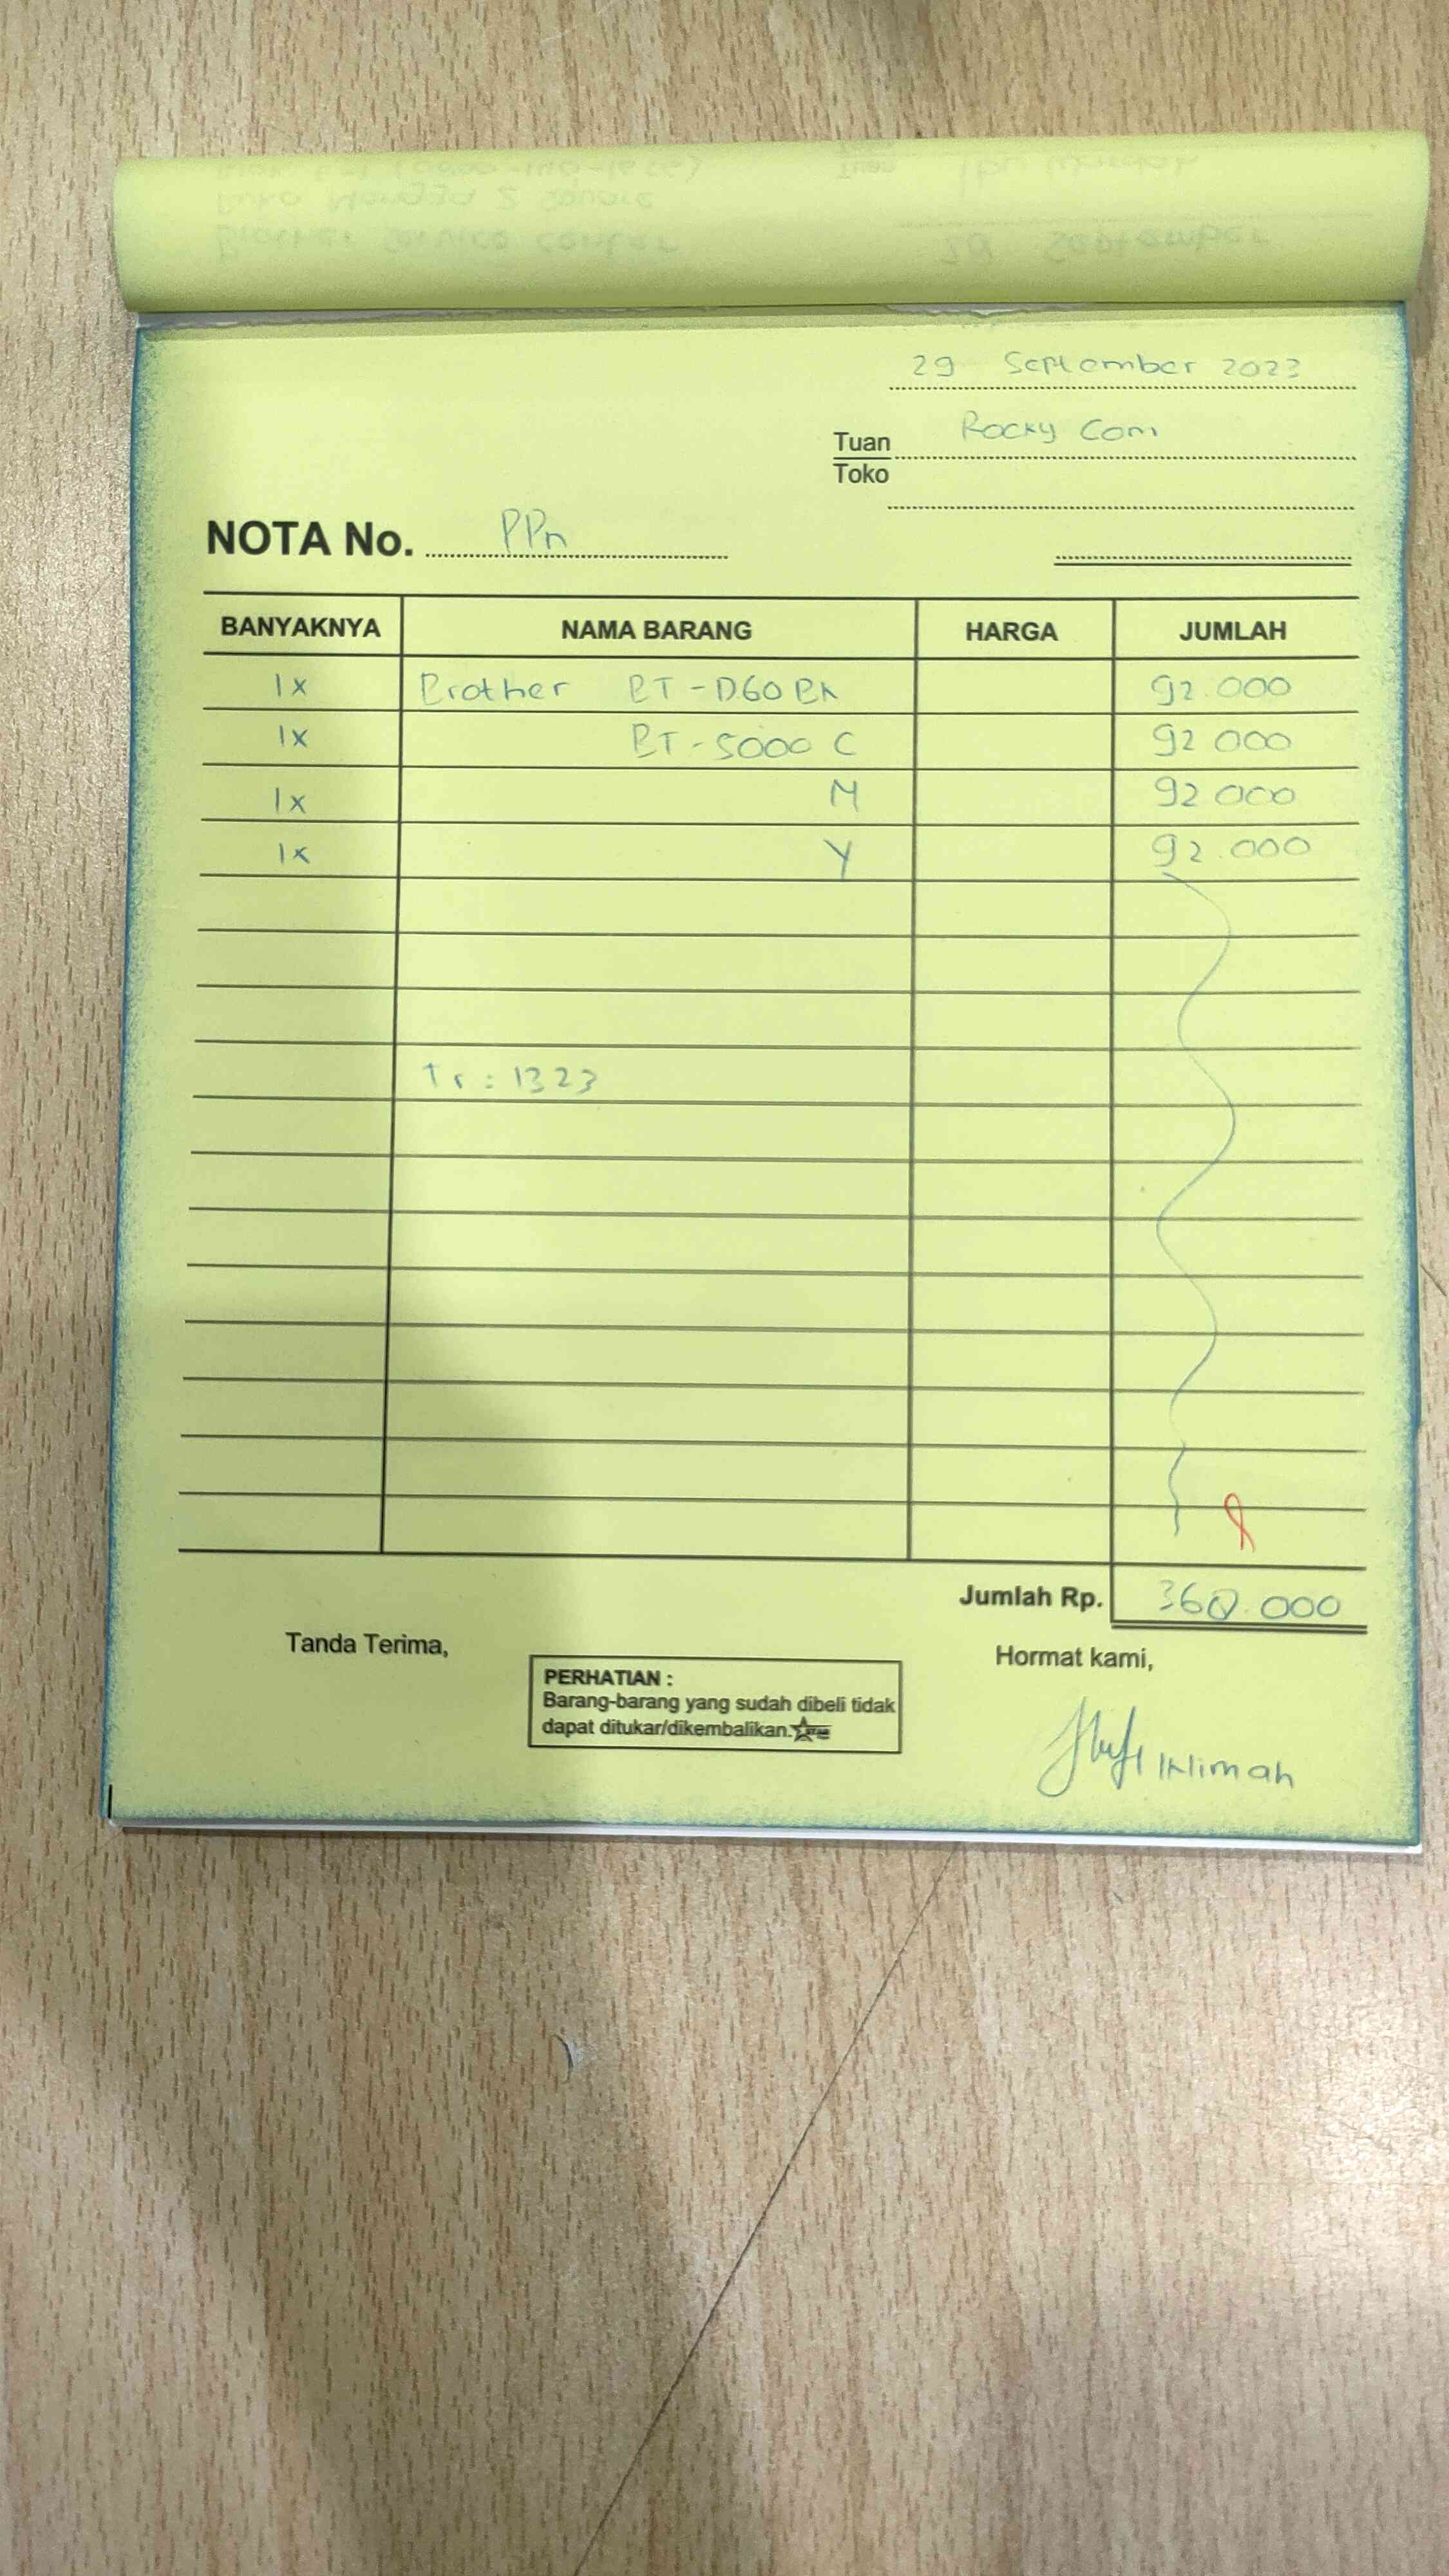 29 September 2023
Tuan Rocky Com
Toko
NOTA No. PPn
BANYAKNYA NAMA BARANG HARGA JUMLAH
1x Brother BT-D60BK 92.000
1x BT-5000 C 92 000
1x M 92 000
1x Y 92.000
Tr : 1323
8
Jumlah Rp. 368.000
Tanda Terima,
Hormat kami,
PERHATIAN :
Barang-barang yang sudah dibeli tidak
dapat ditukar/dikembalikan.
Iklimah